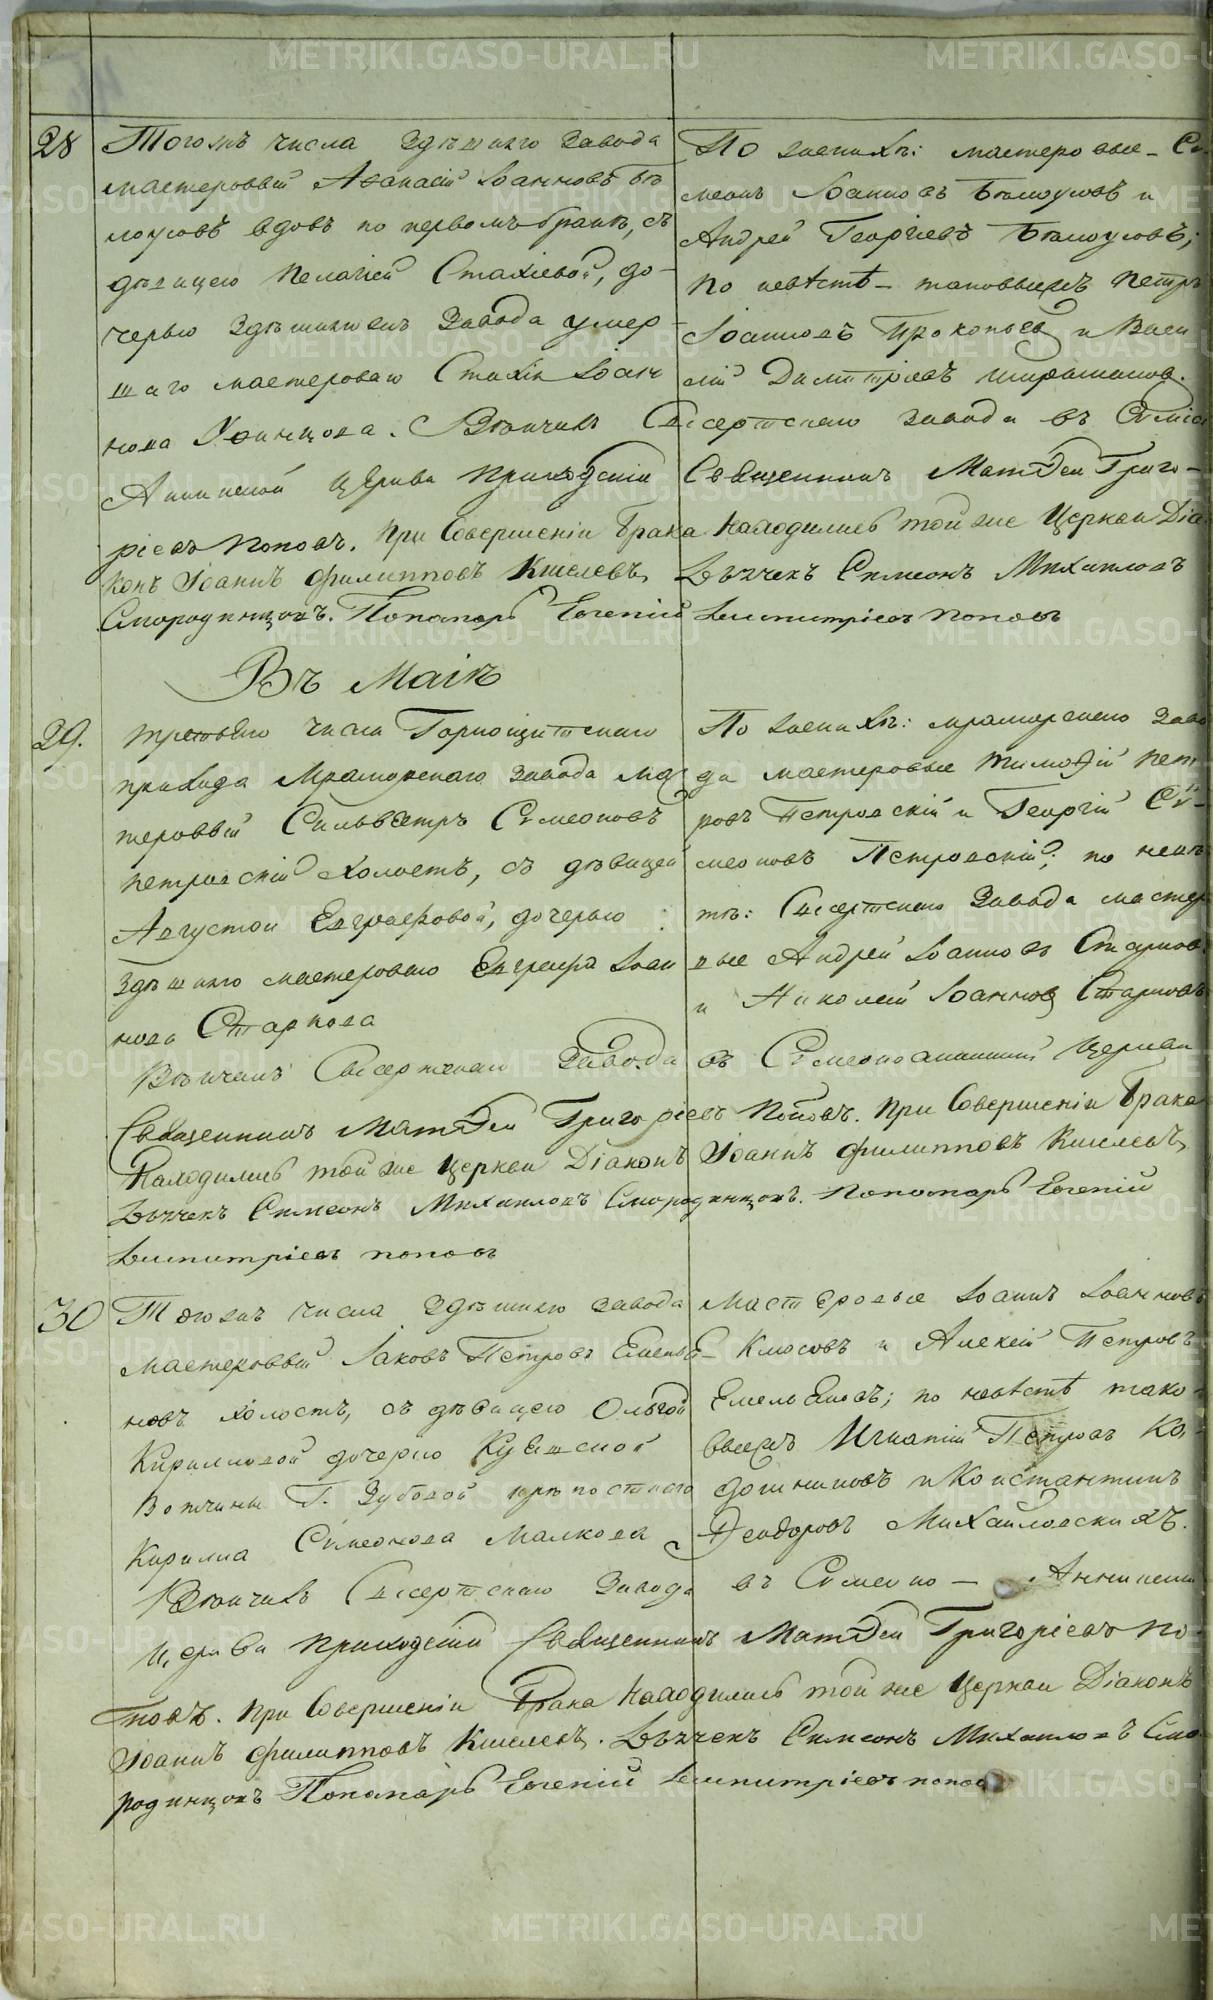 28
Тогожъ числа здѣшняго завода
мастеровый Аѳанасій Іоанновъ Бѣ
лоусовъ вдовъ по первомъ бракѣ, съ
дѣвицею Пелагіей Стахіевой, до-
черью здѣшняго жъ завода умер
шаго мастероваго Стахія Іоан
нова Хвинцова. Вѣнчалъ Сысертскаго завода въ Симео
Аннинской церкви приходскій Священникъ Матѳей Григо-
ріевъ Поповъ. При Совершеніи брака находились той же Церкви Діа
конъ Іоаннъ Филипповъ Киселевъ, Дьячекъ Симеонъ Михаиловъ
Смородинцовъ. Пономарь Евгеній Димитріевъ Поповъ
По женихѣ: мастеровые Си
меонъ Іоанновъ Бѣлоусовъ и
Андрей Георгіевъ Бѣлоусовъ;
по невѣстѣ - таковыежъ Петръ
Іоанновъ Прокопьевъ и Васи
лій Димитріевъ
Въ Маіѣ
29.
третьяго числа Горнощитскаго
прихода Мраморскаго завода мас
теровый Сильвестръ Симеоновъ
Петровскій холостъ, съ дѣвицей
Августой Евграфовой, дочерью
здѣшняго мастероваго Евграфа Іоан
нова Старкова
По женихѣ: мраморскаго заво
да мастеровые Тимоѳей Пет
ровъ Петровскій и Георгій Си-
меоновъ Петровскій; по невѣс
тѣ: Сысертскаго завода мастеро
вые Андрей Іоанновъ Старков
и Николай Іоанновъ Старковъ
Вѣнчалъ Сысертскаго Завода въ Симеоноаннинской Церкви
Священникъ Матѳей Григоріевъ Поповъ. При Совершеніи брака
Находились той же Церкви Діаконъ Іоаннъ Филипповъ Киселевъ,
Дьячекъ Симеонъ Михаиловъ Смородинцовъ. Пономарь Евгеній
Димитріевъ Поповъ
30
Тогожъ числа здѣшняго завода
мастеровый Іаковъ Петровъ Емелья
новъ холостъ, съ дѣвицею Ольгой
Кириловой дочерью Кувинской
вотчины Г. Зубовой крѣпостнаго
Кирилла Симеонова Малкова
Мастеровые Іоаннъ Іоанновъ
Клюсовъ и Алексѣй Петровъ
Емельяновъ; по невѣстѣ тако-
выежъ Игнатій Петровъ Ка-
дошниковъ и Константинъ
Ѳеодоровъ Михайловскихъ.
Вѣнчалъ Сысертскаго Завода въ Симеоно - Аннинской
церкви приходскій Священникъ Матѳей Григоріевъ По-
повъ. При Совершеніи Брака находились той же Церкви Діаконъ
Іоаннъ Филипповъ Киселевъ. Дьячекъ Симеонъ Михаиловъ Смо
родинцовъ Пономарь Евгеній Димитріевъ Попов
METRIKI.GASO-URAL.RU